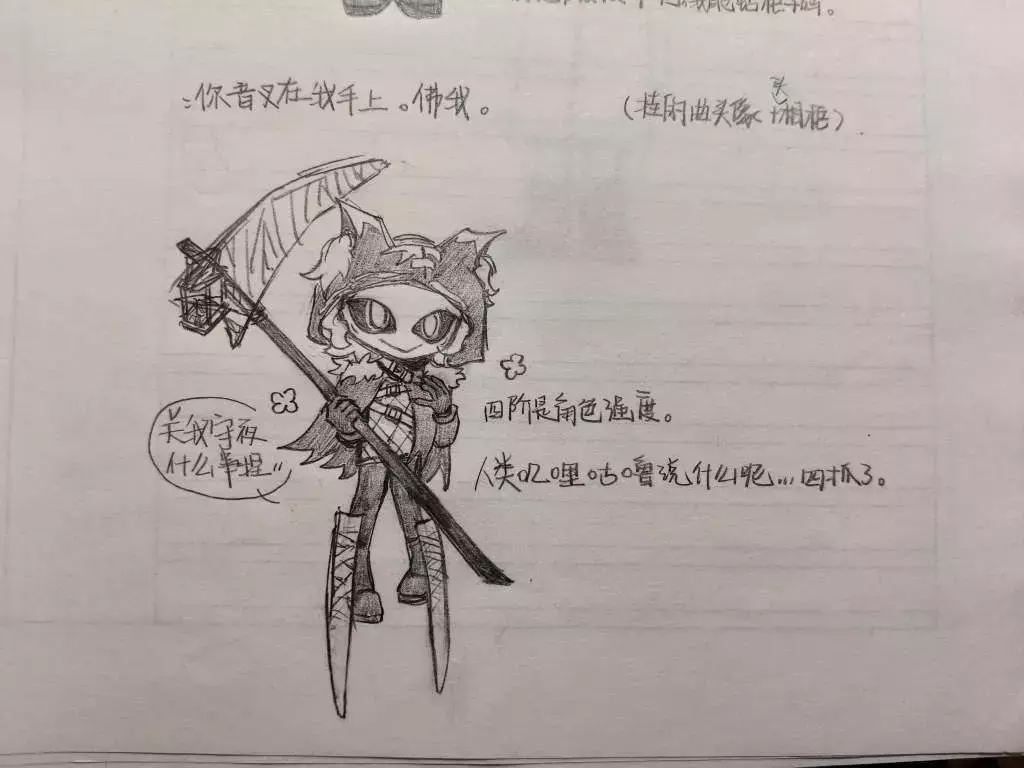 :你音叉在我手上。佛我。
(挂的曲头像 头相框)
关我守夜
什么事捏
四阶是角色强度。
人类叽哩咕噜说什么呢...四抓了。